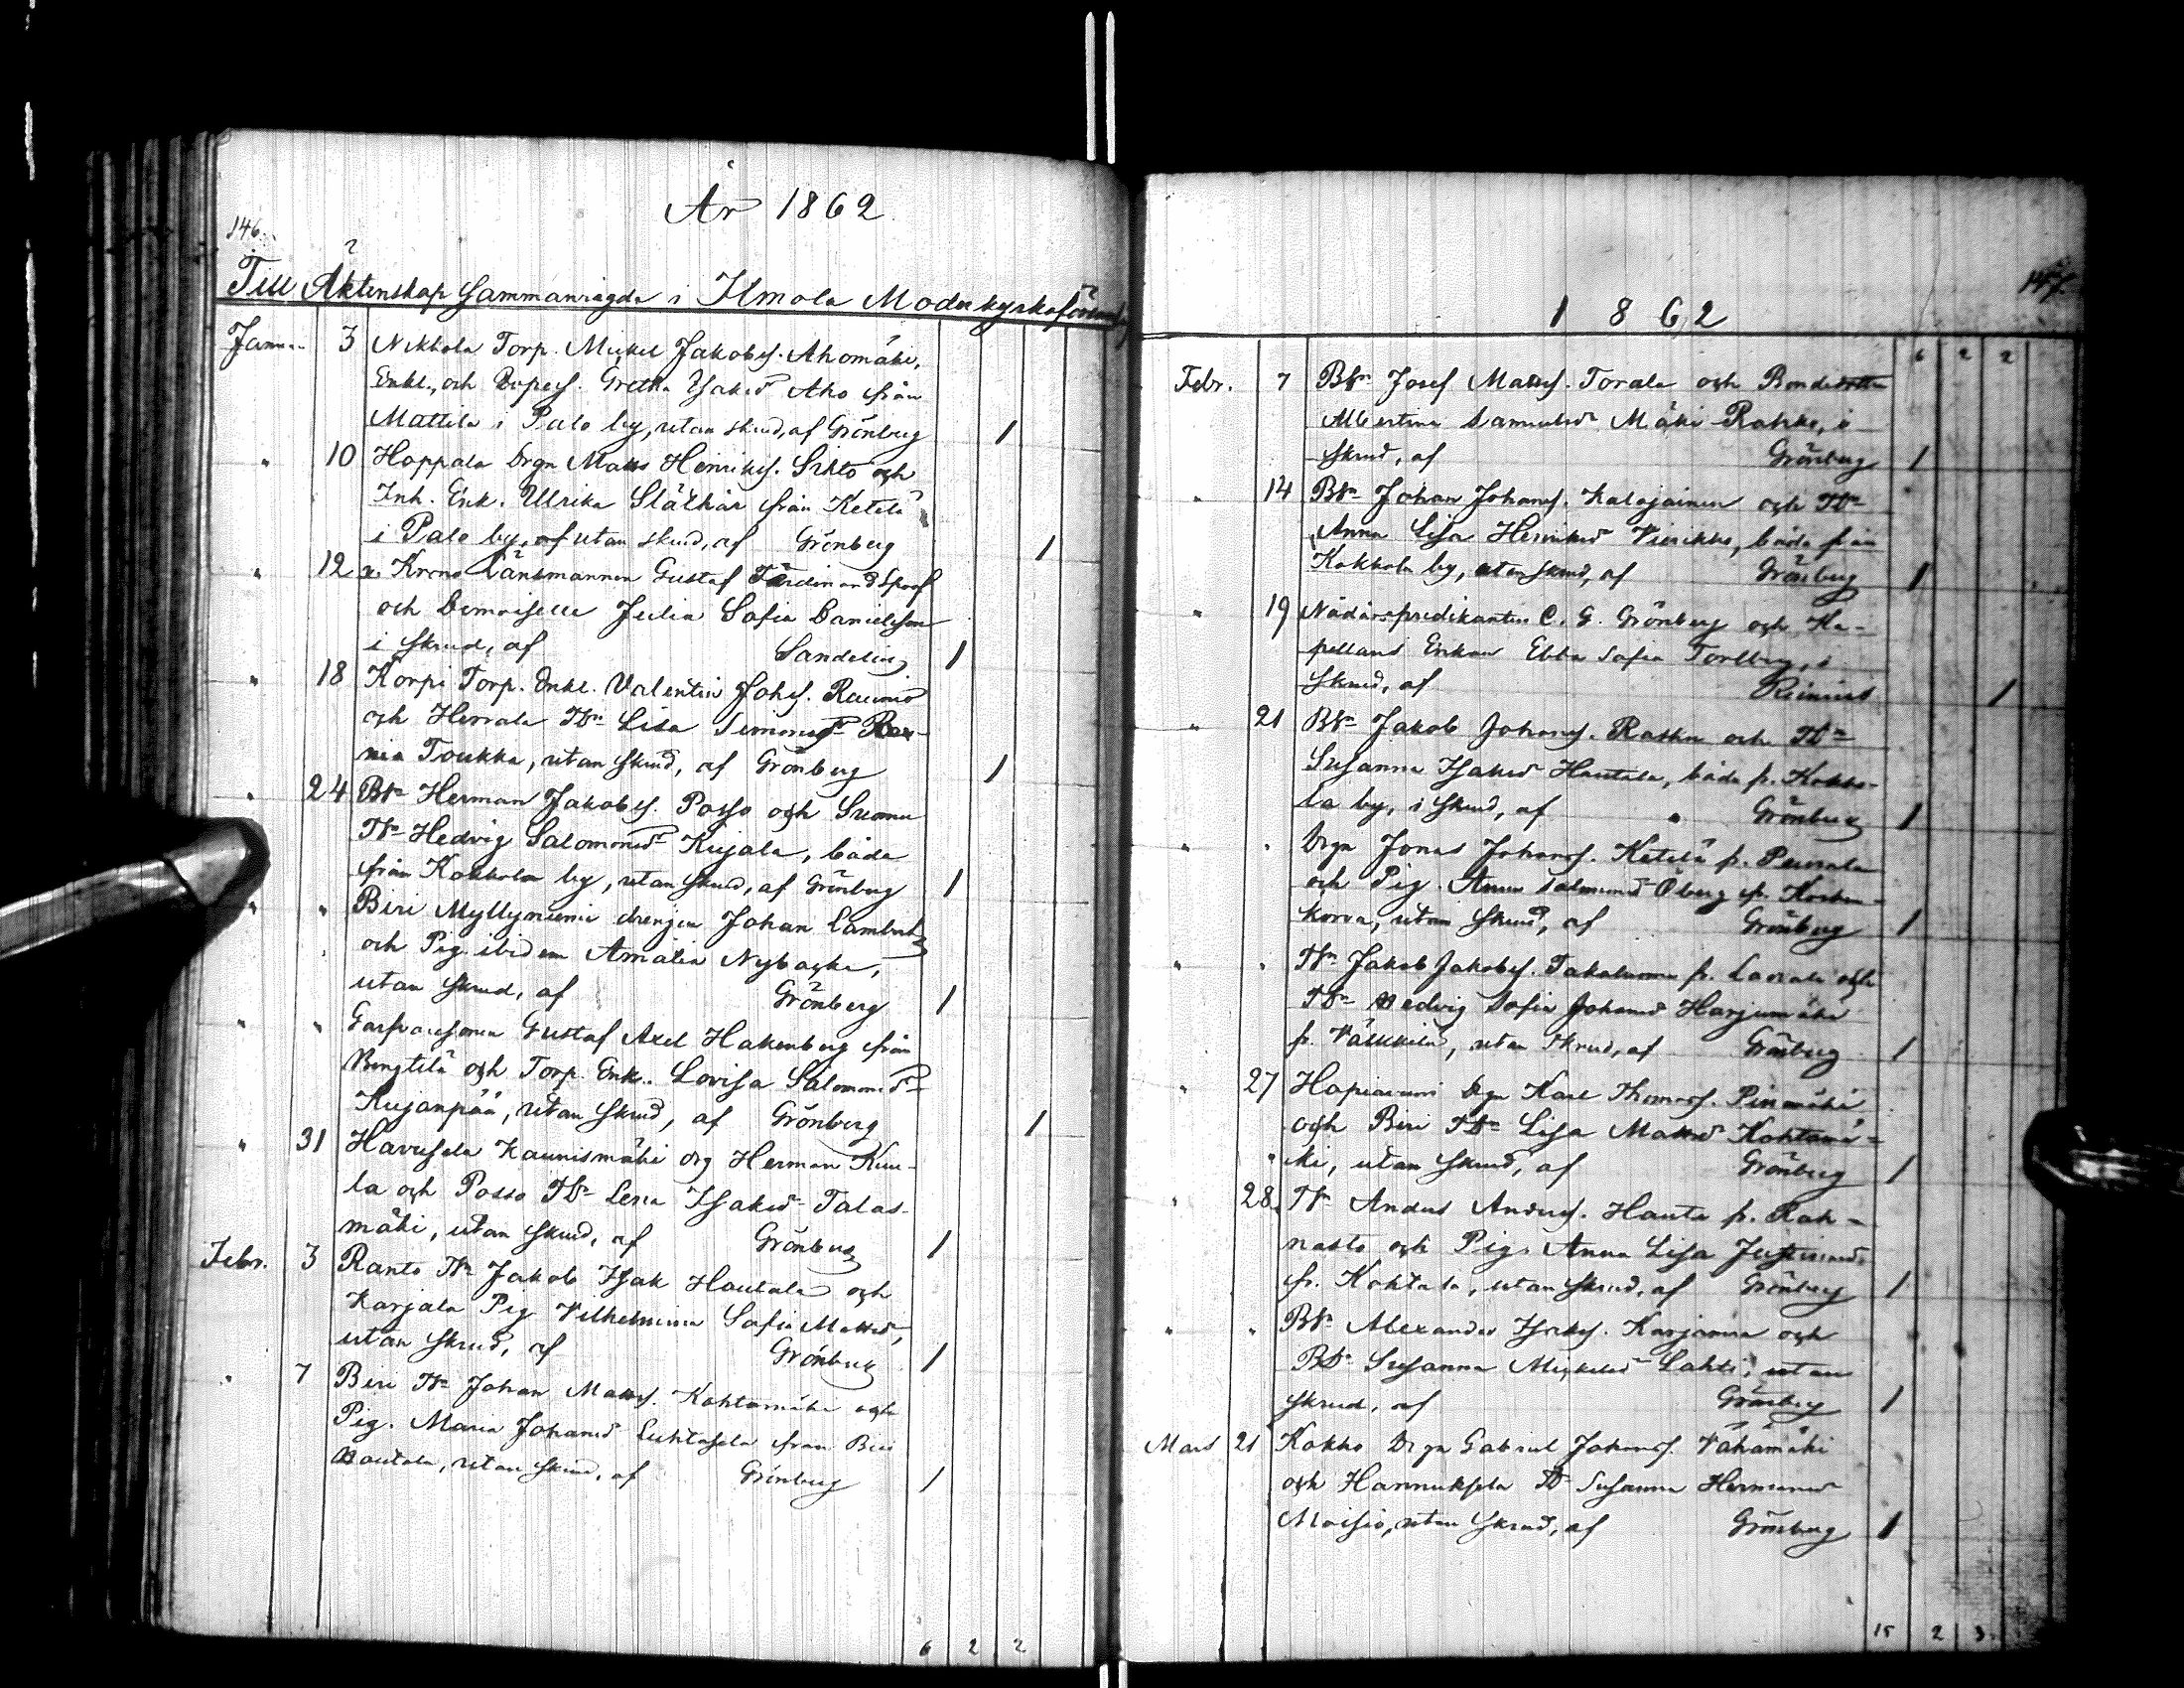 År 1862
146.
Till Äktenskap Sammanvigda i Ilmola Moderkyrkoförsaml
Januar. 3 Nikkola Torp. Mickel Jakobss. Ahomäki,
Enkl., och Gretha Isaksd Aho från
Mattila i Palo by, utan skrud, af Grönberg 1
" 10 Hoppala Drgn Matts Henrikss. Sikto och
Inh. Enk. Ulrika Slätkär från Ketelä
i Palo by, af utan skrud, af Grönberg 1
" 12 v. Krono Länsmannen Gustaf Ferdinand Spoof
och Demoiselle Julia Sofia Danielsson
i skrud, af Sandelin 1
" 18 Korpi Torp. Enkl. Valentin Johss. Raunio
och Herrala TDr Lisa Simonsdr
Toukka, utan skrud, af Grönberg 1
" 24 BSn Herman Jakobss. Posso och
TDr Hedvig Salomonsdr Kujala, båda
från Kokkola by, utan skrud, af Grönberg 1
" " Biri Myllyniemi drengen Johan Lambert
och Pig. ibidem Amalia Nybacka,
utan skrud, af Grönberg 1
" " Garfvaresonen Gustaf Axel Hakenberg från
Bengtilä och Torp. Enk. Lovisa Salomonsdr
Kujanpää, utan skrud, af Grönberg 1
" 31 Havusela Kaunismäki drg Herman Kuu-
la och Posso TDr Lena Isaksdr Talas-
mäki, utan skrud, af Grönberg 1
Febr. 3 Ranto TSn Jakob Isak Hautala och
Karjala Pig Vilhelmina Sofia Mattsd,
utan skrud, af Grönberg 1
" 7 Biri TSn Johan Mattss. Kohtamäki och
Pig. Maria Johansd Luhtasela från Biri
Hautala, utan skrud, af Grönberg 1
6 2 2
147.
1862
6 2 2
Febr. 7 BSn Josef Mattss. Torala och Bondedottern
Albertina Samuelsdr Mäki Rahko, i
skrud, af Grönberg 1
" 14 BSn Johan Johanss. Kalajainen och TDr
Anna Lisa Henriksd Vierikko, båda från
Kokkola by, utan skrud, af Grönberg 1
" 19 Nådårspredikanten C. G. Grönberg och Ka-
pellans Enkan Ebba Sofia Forlberg, i
skrud, af Reinius 1
" 21 BSn Jakob Johanss. Rasku och TDr
Susanna Isaksd Hautala, båda fr. Kokko-
la by, i skrud, af Grönberg 1
" " Drgn Jonas Johanss. Ketelä fr. Peurala
och Pig. Anna Salomonsd Öberg fr. Kosken-
korva, utan skrud, af Grönberg 1
" " TSn Jakob Jakobss. Takaluoma fr. Laurala och
TDr Hedvig Sofia Johansd Harjumäki
fr. Välkkilä, utan skrud, af Grönberg 1
" 27 Hapiavuori Drgn Karl Thomass. Pinomäki
och Biri TDr Lisa Mattsd Kohtamä-
ki, utan skrud, af Grönberg 1
" 28. TSn Anders Anderss. Hauta fr. Rah-
nasto och Pig. Anna Lisa Justinasd.
fr. Kohtala, utan skrud, af Grönberg 1
" " BSn Alexander Isakss. Karjanva och
BDr Susanna Mickelsd Lahti, utan
skrud, af Grönberg 1
Mars 21 Kokko Drgn Gabriel Johanss. Vähämäki
och Hannuksela TDr Susanna Hermansd
Moisio, utan skrud, af Grönberg 1
15 2 3